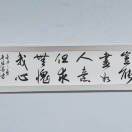 豈能
盡如
人意
但求
無愧
我心